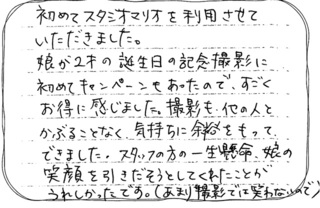 初めてスタジオマリオを利用させて
いただきました。
娘が2才の誕生日の記念撮影に
初めてキャンペーンもあったので、すごく
お得に感じました。撮影も、他の人と
かぶることなく、気持ちに余裕をもって、
できました。スタッフの方の一生懸命、娘の
笑顔を引きだそうとしてくれたことが
うれしかったです。(あまり撮影では笑わないので)